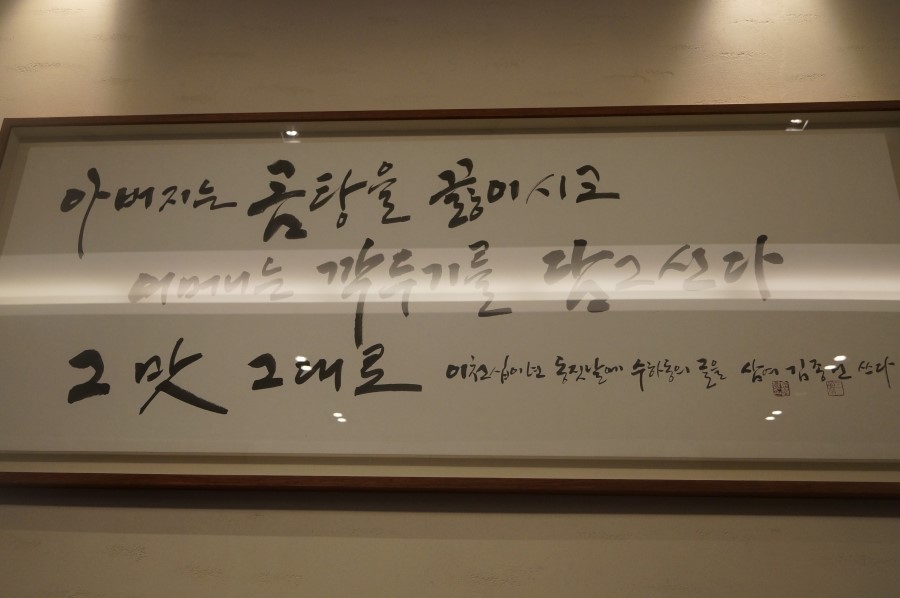 아버지는 곰탕을 끓이시고
어매는 깍두기를 담그신다
그 맛 그대로
이천십이년 동짓날에 수하동의 글을 삼여 김종건 쓰다